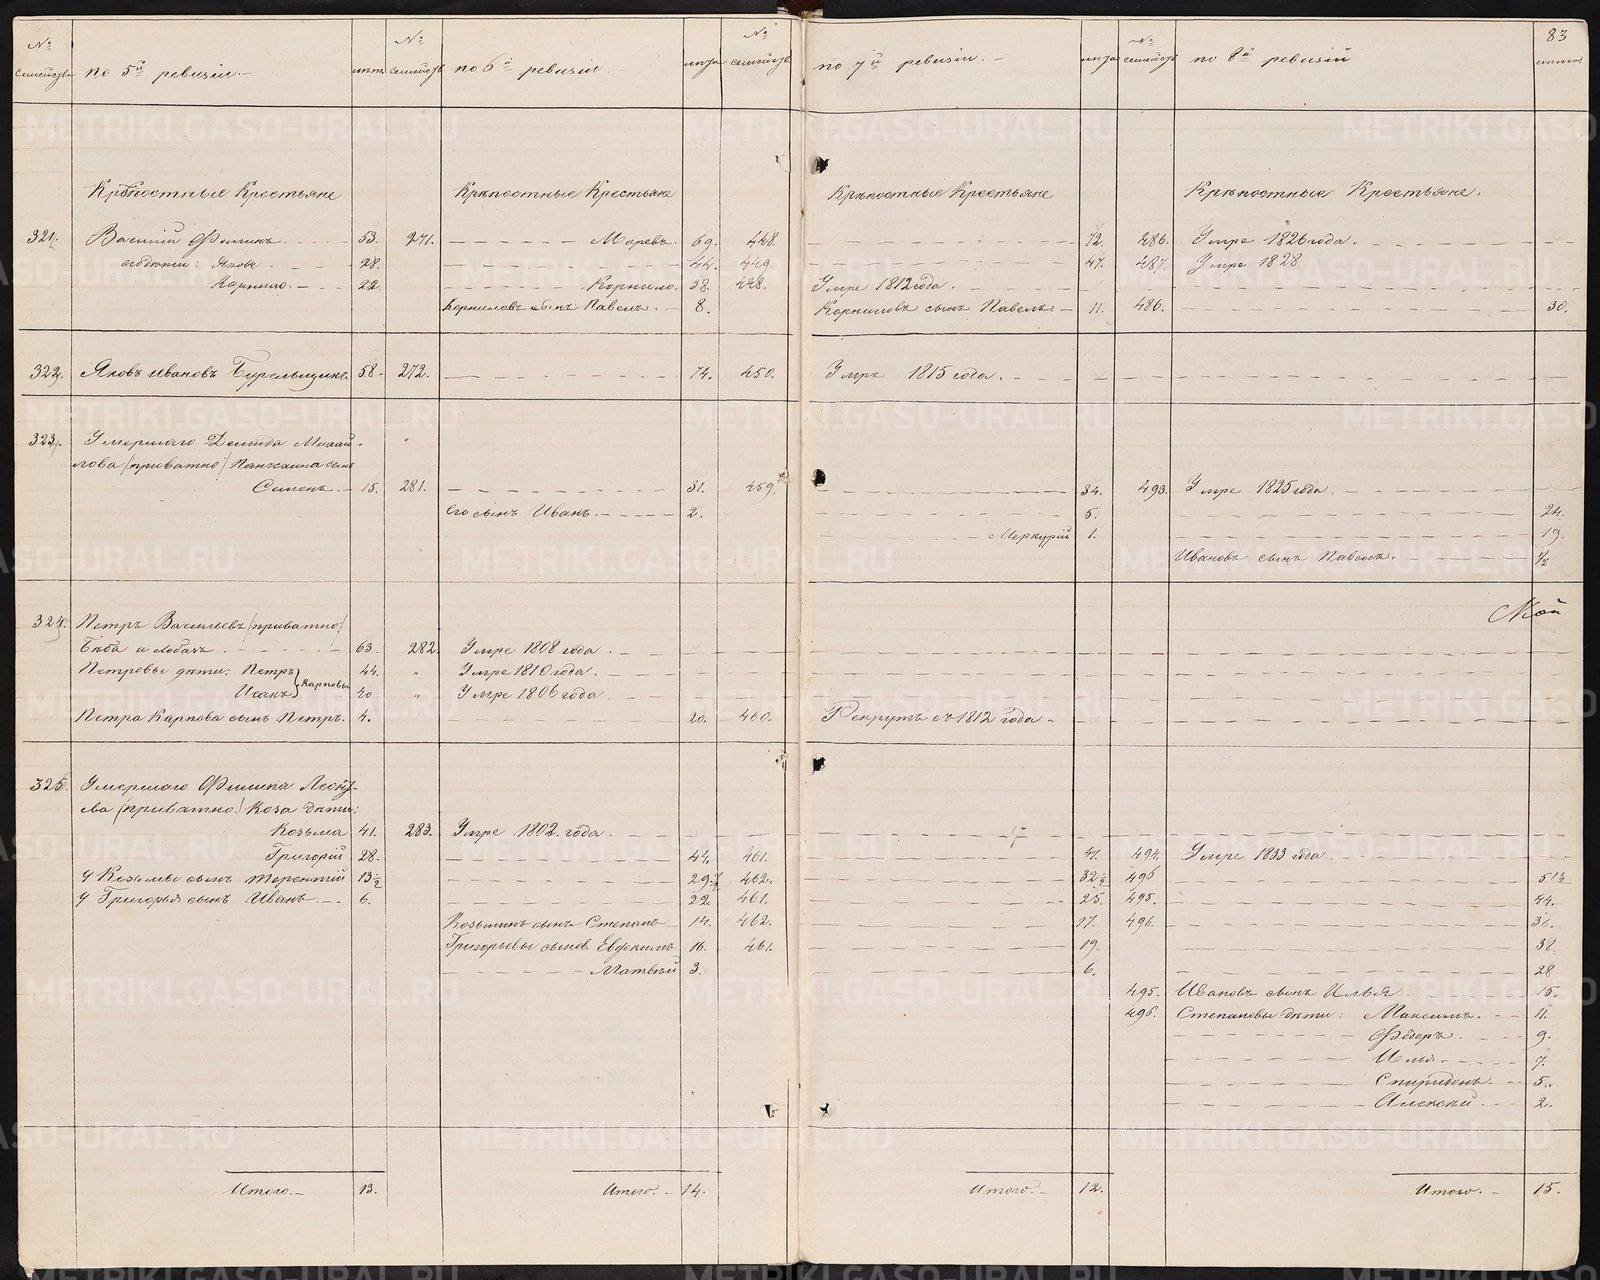 83
№ семействъ по 5й ревизіи.- лѣта № семействъ по 6й ревизіи.- лѣта № семейств. по 7й ревизіи.- лѣта № семейств. по 8й ревизій лѣта
Крѣпостные Крестьяне Крѣпостные Крестьяне Крѣпостные Крестьяне Крѣпостные Крестьяне.
321. Василій Фоминъ. 53. 271. Маревъ. 69. 448. 72. 486. Умре 1826 года.
Яковъ 28. 44. 449. 47. 487. Умре 1828
Корнило. 22. Корнило. 38. 448. Умре 1812 года.
Корниловъ сынъ Павелъ. 8. Корниловъ сынъ Павелъ. 11. 486. 30.
322. Яковъ Ивановъ 58. 272. 74. 450. Умре 1815 года.
323. Умершаго Демида Михай-
лова /приватно/ Панчехина сынъ
Семенъ. 15. 281. 31. 459. 34. 493. Умре 1825 года.
Его сынъ Иванъ. 2. 5. 24.
Меркурій 1. 19.
Ивановъ сынъ Павелъ. 1/2
324. Петръ Васильевъ /приватно/
63. 282. Умре 1808 года.
Петровы дѣти: Петръ 44. " Умре 1810 года.
Исакъ } Карповы 20 " Умре 1806 года
Петра Карпова сынъ Петръ. 4. 20. 460. Рекрутъ съ 1812 года.
325. Умершаго Филипа Леонтье-
ва /приватно/ Коза дѣти:
Козьма 41. 283. Умре 1802 года.
Григорій 28. 44. 461. 47. 494. Умре 1833 года.
У Козьмы сынъ Терентій 13 1/2 29 1/2 462. 32 1/2 496 51 1/2
У Григорья сынъ Иванъ. 6. 22 461. 25. 495. 44.
Козьминъ сынъ Степанъ. 14. 462. 17. 496. 36.
Григорьевы сынов. Евфимъ 16. 461. 19. 38.
Матвѣй 3. 6. 28
495. Ивановъ сынъ Илья. 15.
496. Степановы дѣти: Максимъ. 11.
Ѳёдоръ. 9.
Илья. 7.
Спиридонъ. 5.
Алексѣй. 2.
Итого.- 13. Итого.- 14. Итого.- 12. Итого.- 15.
METRIKI.GASO-URAL.RU